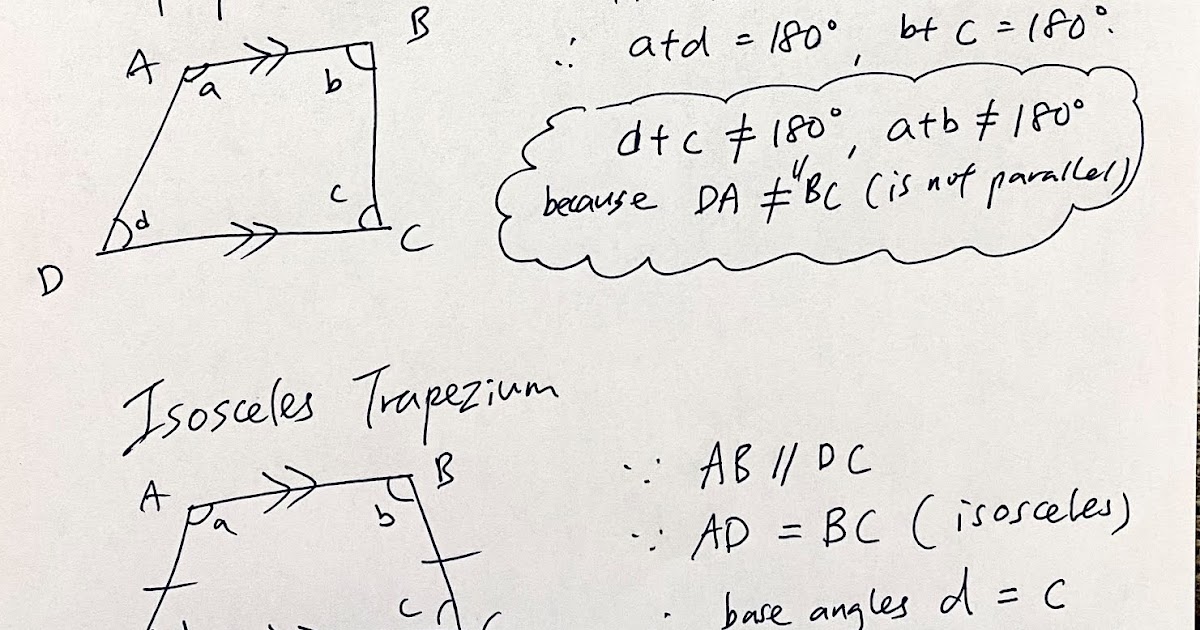 A
B
a
b
∴ a+d = 180°, b+ c = 180°.
d+c ≠ 180°, a+b ≠ 180°
because DA ∦ BC (is not parallel)
d
c
D
C
Isosceles Trapezium
A
B
a
b
∵ AB // DC
∵ AD = BC (isosceles)
c
base angles d = c